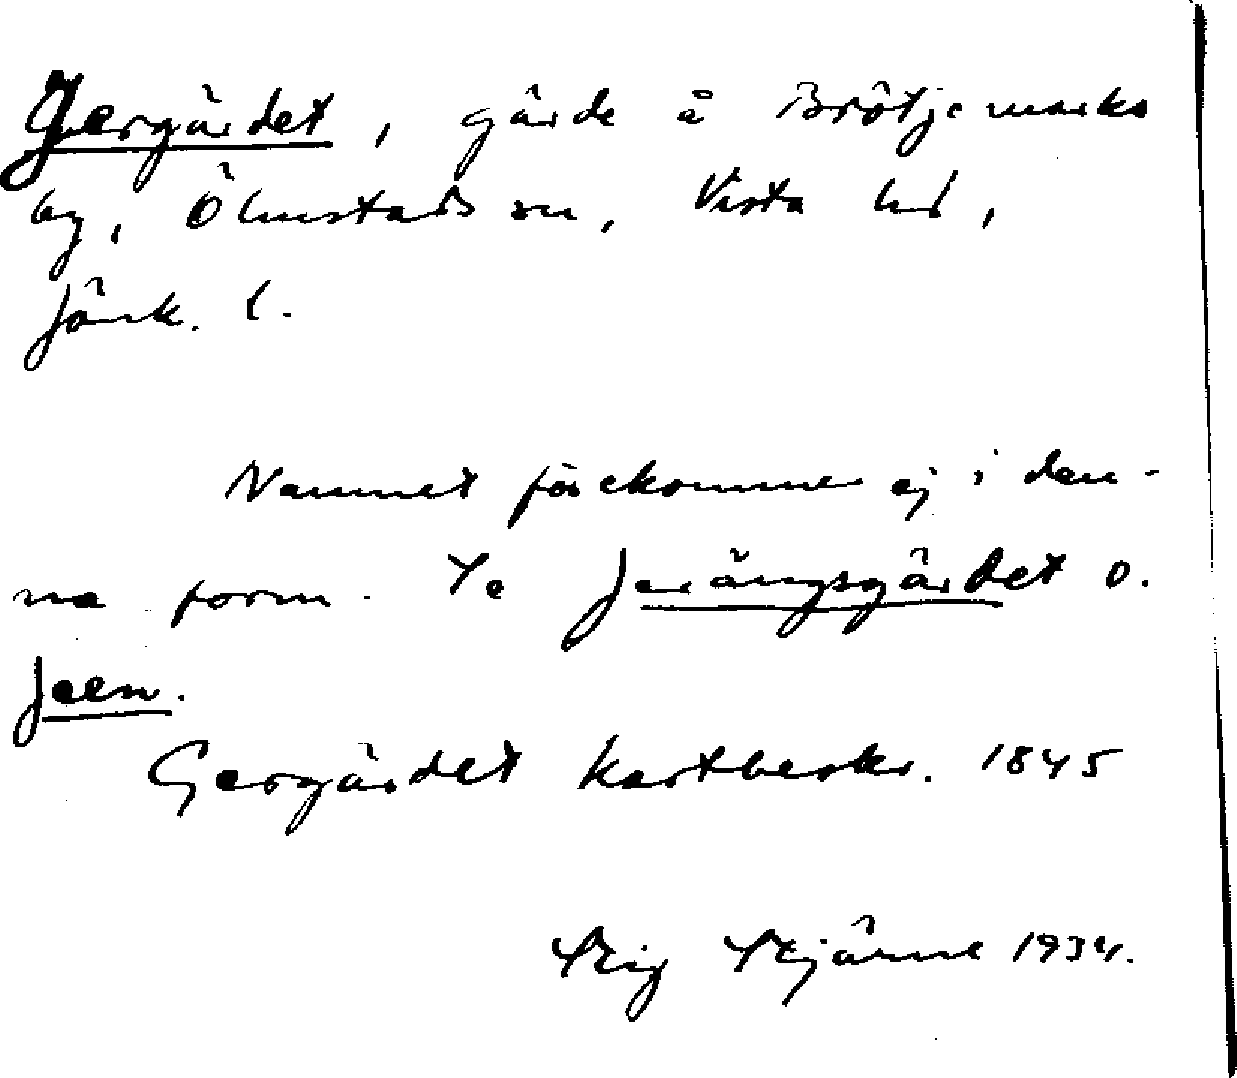 Gergärdet, gärde å Brötjemarks
by, Ölmstads sn, Vista hd,
Jönk. l.
Namnet förekommer ej i den-
na form. Se Jerängsgärdet o.
Jeen.
Gergärdet kartbeskr. 1845
Stig Stjärne 1934.